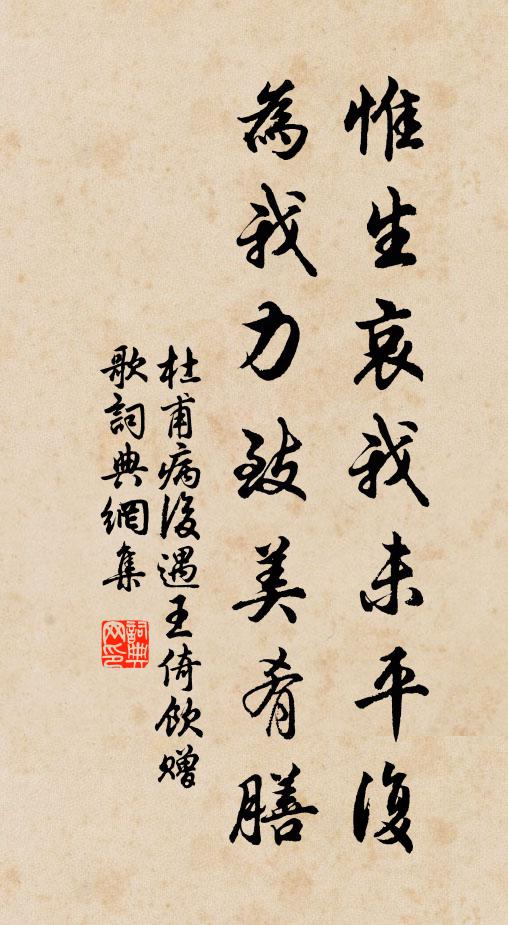 惟生哀我未平復
為我力致美肴膳
杜甫病後遇王倚飲贈
歌詞典網集
詞典
网印